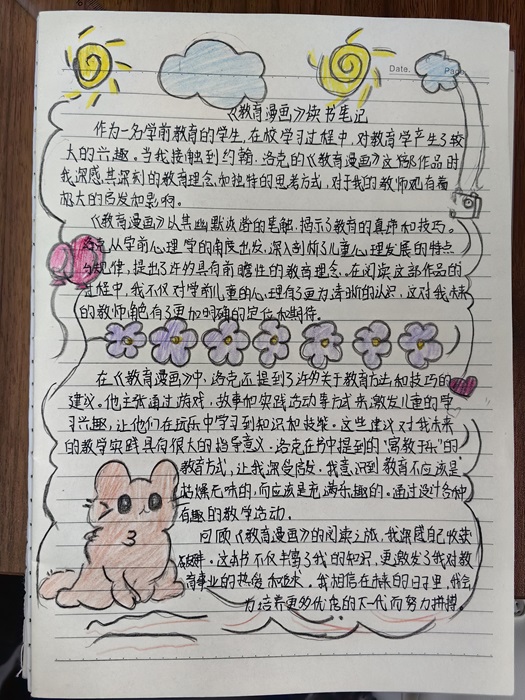 Date.
《教育漫画》读书笔记
作为一名学前教育的学生，在校学习过程中，对教育学产生了较
大的兴趣。当我接触到约翰·洛克的《教育漫画》这部作品时
我深感其深刻的教育理念和独特的思考方式，对于我的教师观有着
极大的启发和影响。
《教育漫画》以其幽默诙谐的笔触，揭示了教育的真谛和技巧。
洛克从学前心理学的角度出发，深入剖析了儿童心理发展的特点
与规律，提出了许多具有前瞻性的教育理念。在阅读这部作品的
过程中，我不仅对学前儿童的心理有了更为清晰的认识，这对我未来
的教师角色有了更加明确的定位和期待。
在《教育漫画》中，洛克还提到了许多关于教育方法和技巧的
建议。他主张通过游戏、故事和实践活动等方式来激发儿童的学
习兴趣，让他们在玩乐中学习到知识和技能。这些建议对我未来
的教学实践具有很大的指导意义。洛克在书中提到的“寓教于乐”的
教育方式，让我深受启发。我意识到教育不应该是
枯燥无味的，而应该是充满乐趣的。通过设计各种
有趣的教学活动。
回顾《教育漫画》的阅读之旅，我深感自己收获
颇丰。这本书不仅丰富了我的知识，更激发了我对教
育事业的热爱和追求。我相信在未来的日子里，我会
为培养更多优秀的下一代而努力拼搏。